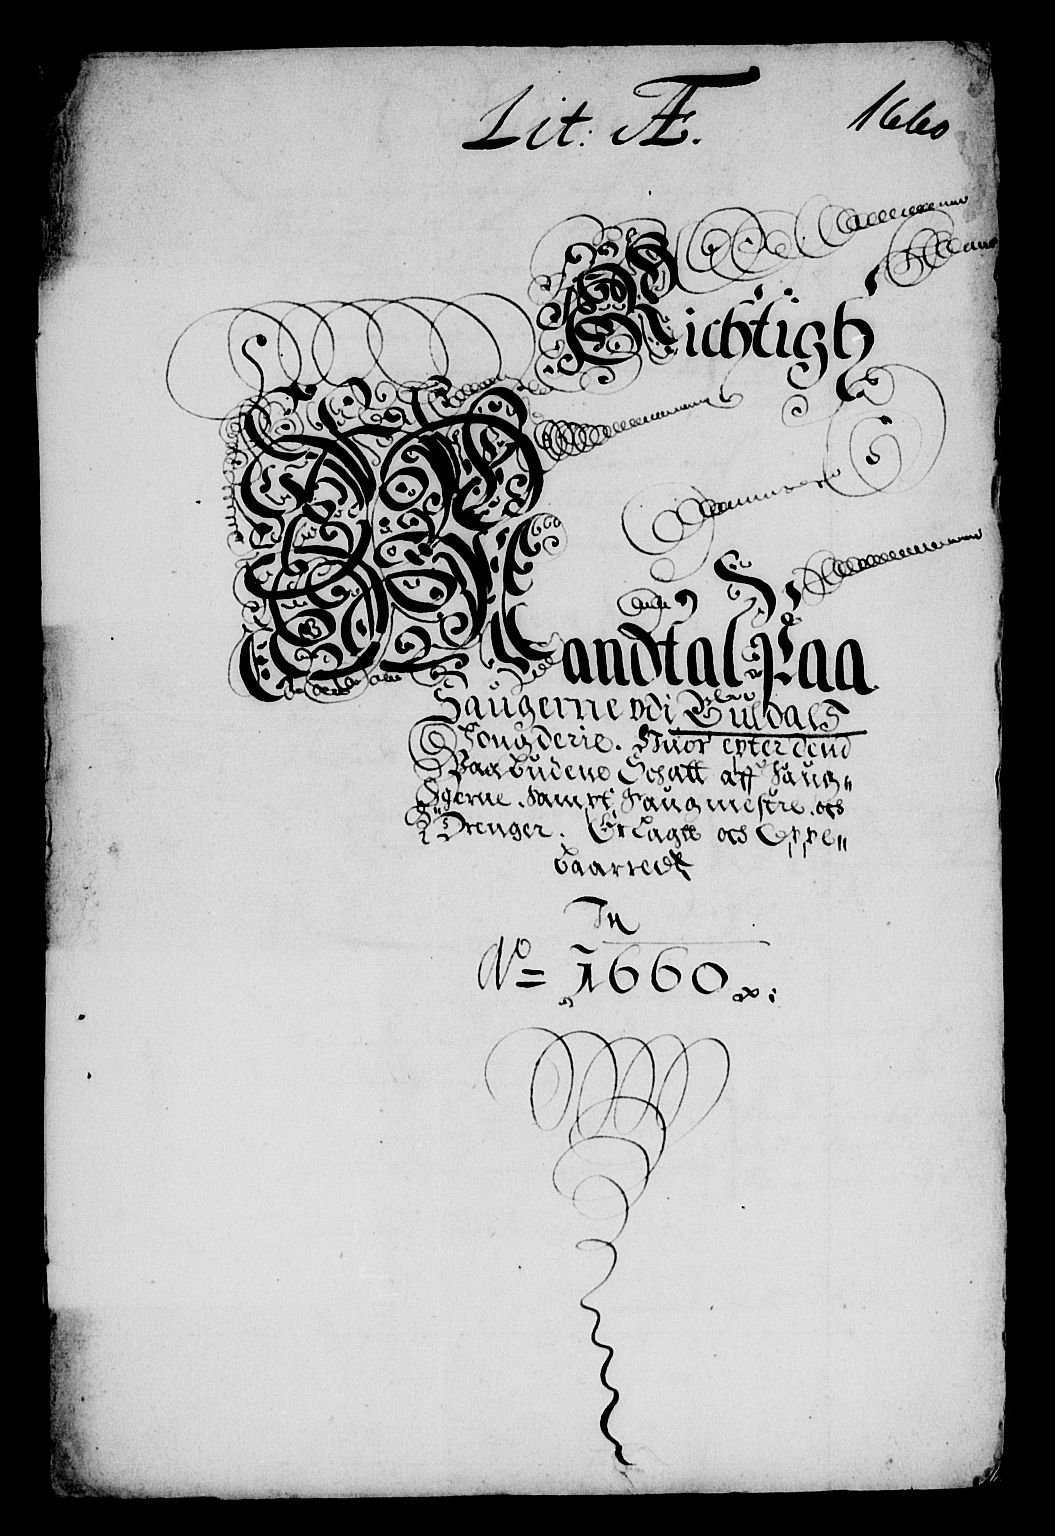 Lit. Æ. 1660
Richtigh
Mandtal Paa
Saugerne vdi Guldals
Fougderie. Huor epter dend
Paabudene Schatt aff Saug¬
gerne. Sampt Saugmestre. och
Drenger. Er Lagtt och Oppe¬
baarredt
In
Ao= 1660